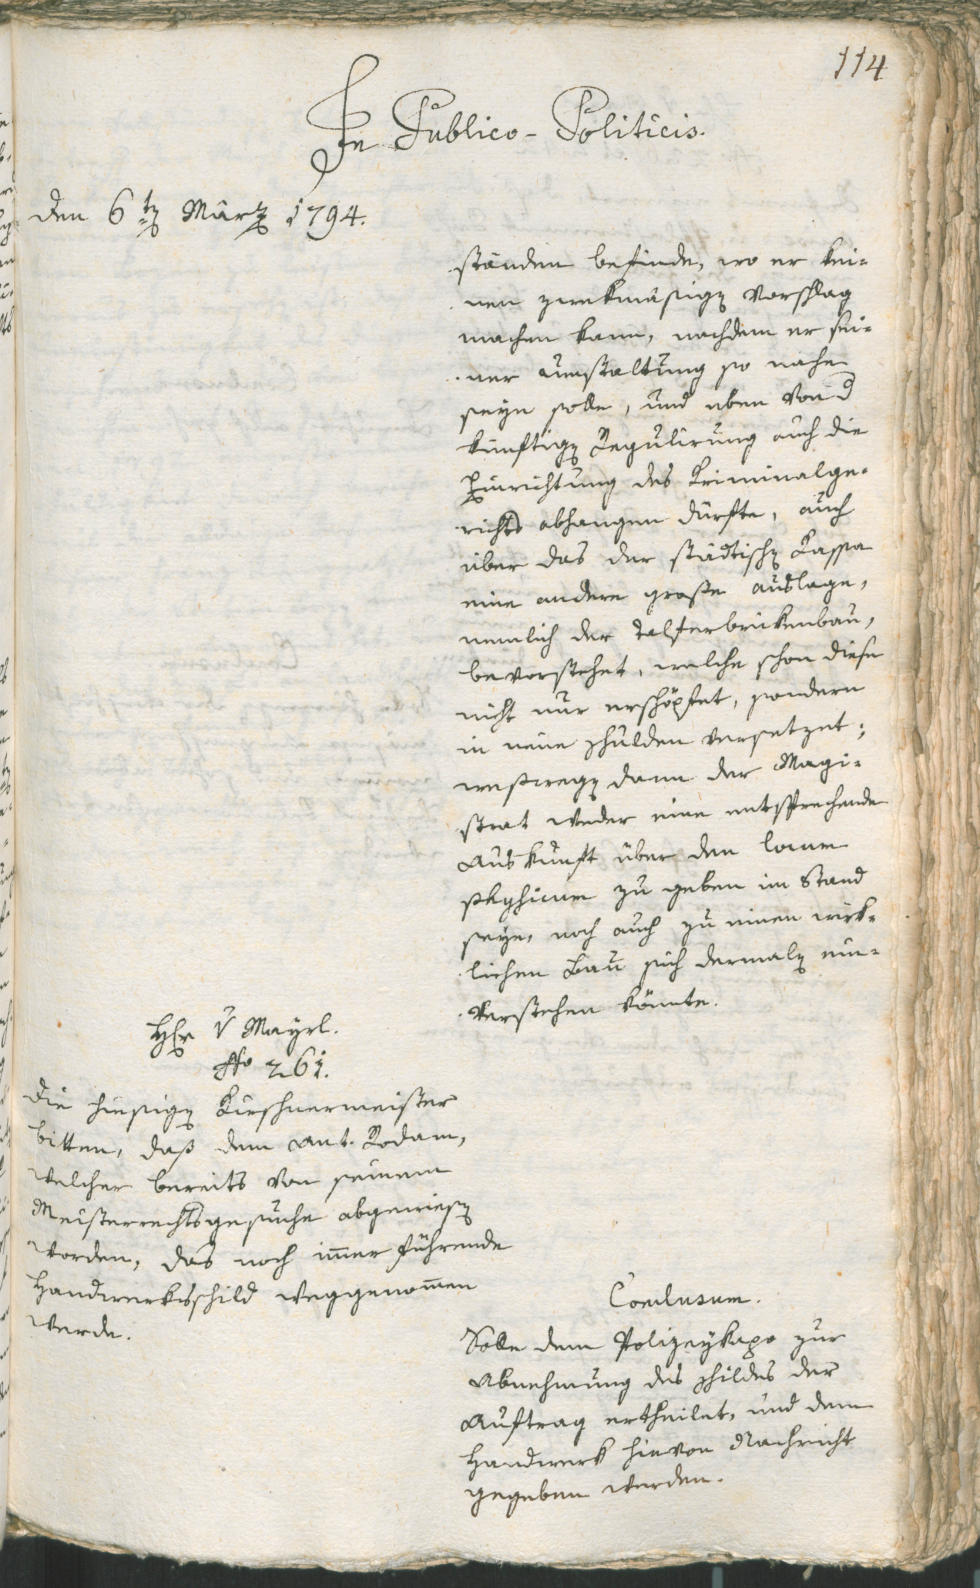 114
In Publico-Politicis.
den 6t März 1794.
ständen befinde, wo er kei-
nen zwekmäsig Vorschlag
machen kann, nachdem er sei-
ner umstaltung so nahe
seyn solle, und eben von d
künftig Regulirung auch die
Einrichtung des Kriminalge-
richts abhangen dürfte, auch
über das der städtisch Kassa
eine andere große auslage,
nemlich der talferbrükenbau,
bevorstehet, welche schon diese
nicht nur erschöpfet, sondern
in neue schulden versetzet;
weßweg dann der Magi-
strat weder eine entsprechende
Auskunft über den locum
zu geben im Stand
seye, noch auch zu einen wirk-
lichen Bau sich dermal ein-
verstehen könnte.
Hr v Mayrl.
No 261.
die hiesig Kirschnermeister
bitten, daß dem Ant. Rodam,
welcher bereits von seinem
Meisterrechtsgesuche abgewies
worden, das noch imer führende
Handwerksschild weggenomen
werde.
Conclusum.
Solle dem Polizeykapo zur
Abnehmung des schildes der
Auftrag ertheilet, und dem
Handwerk hievon Nachricht
gegeben werden.